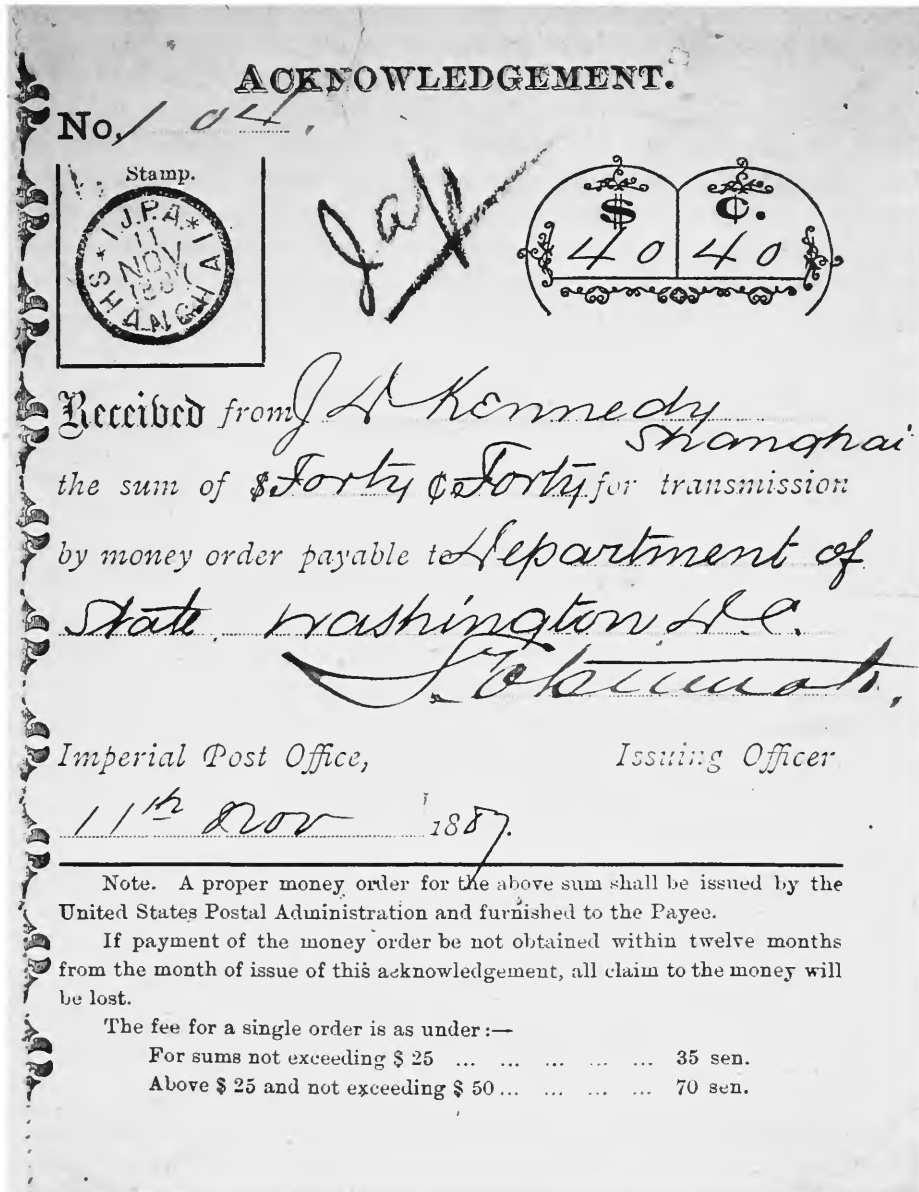 ACKNOWLEDGEMENT.
No. 104.
Stamp.
* I.J.P.A. *
11
NOV
188
SHANGHAI
$ ¢.
40 40
Received from J D Kennedy
Shanghai
the sum of $ Forty ¢ Forty for transmission
by money order payable to Department of
State Washington D.C.
Imperial Post Office, Issuing Officer
11th Nov 1887.
Note. A proper money order for the above sum shall be issued by the
United States Postal Administration and furnished to the Payee.
If payment of the money order be not obtained within twelve months
from the month of issue of this acknowledgement, all claim to the money will
be lost.
The fee for a single order is as under:—
For sums not exceeding $ 25 ... ... ... ... ... 35 sen.
Above $ 25 and not exceeding $ 50 ... ... ... ... 70 sen.